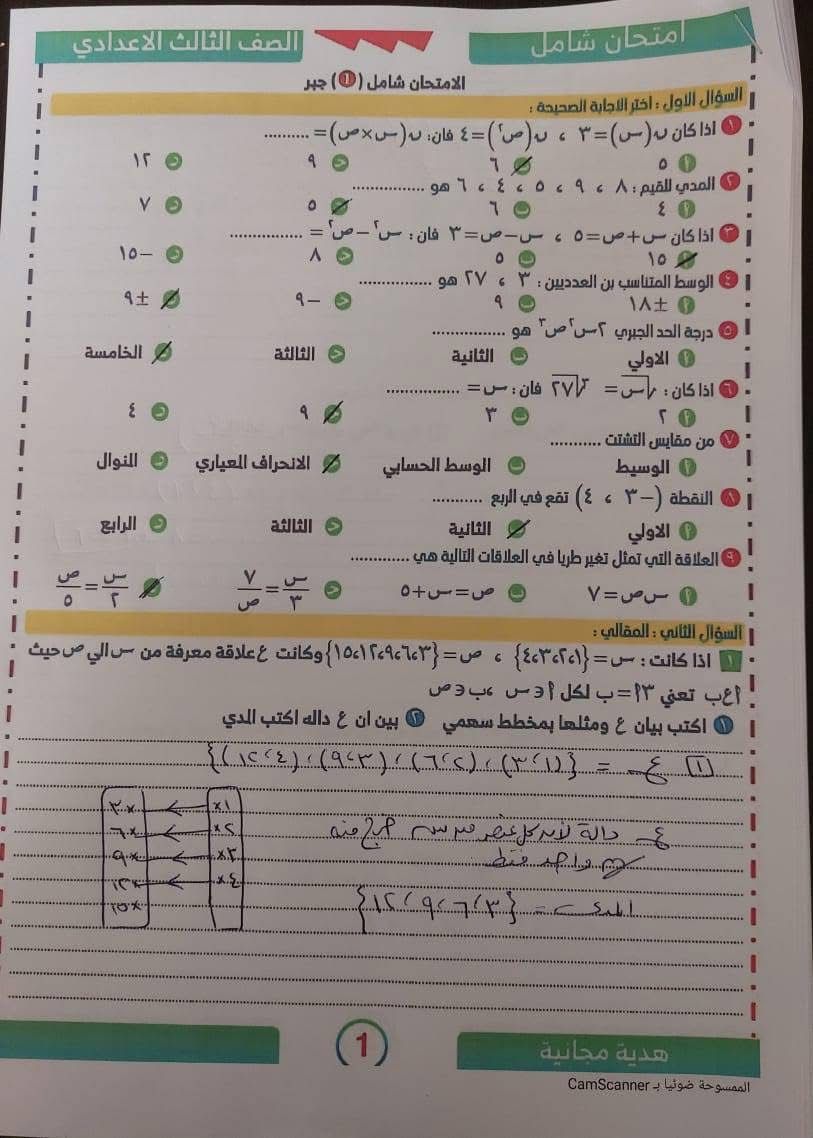 امتحان شامل
الصف الثالث الاعدادي
الامتحان شامل (1) جبر
السؤال الاول : اختر الاجابة الصحيحة :
١ اذا كان ن(س)=٣ ، ن(ص٢)=٤ فان: ن(س×ص)= ..........
أ ٥ ب ٦ ج ٩ د ١٢
٢ المدي للقيم: ٨ ، ٩ ، ٥ ، ٤ ، ٦ هو ................
أ ٤ ب ٦ ج ٥ د ٧
٣ اذا كان س+ص=٥ ، س-ص=٣ فان: س٢-ص٢= ................
أ ١٥ ب ٥ ج ٨ د -١٥
٤ الوسط المتناسب بن العدديين: ٣ ، ٢٧ هو ................
أ ±١٨ ب ٩ ج -٩ د ±٩
٥ درجة الحد الجبري ٢س٢ص٣ هو ................
أ الاولي ب الثانية ج الثالثة د الخامسة
٦ اذا كان: √س = ٣√٢٧ فان: س= ................
أ ٢ ب ٣ ج ٩ د ٤
٧ من مقايس التشتت ...........
أ الوسيط ب الوسط الحسابي ج الانحراف المعياري د المنوال
٨ النقطة (-٣ ، ٤) تقع في الربع ...........
أ الاولي ب الثانية ج الثالثة د الرابع
٩ العلاقة التي تمثل تغير طريا في العلاقات التالية هي .............
أ س ص=٧ ب ص=س+٥ ج س/٣=٧/ص د س/٢=ص/٥
السؤال الثاني : المقالي :
١ اذا كانت: س={١،٢،٣،٤} ، ص={٣،٦،٩،١٢،١٥} وكانت ع علاقة معرفة من س الي ص حيث
أ ع ب تعني ٣أ=ب لكل أ∈س ،ب∈ص
١ اكتب بيان ع ومثلها بمخطط سهمي ٢ بين ان ع داله اكتب المدي
١ بيان ع = {(١،٣)،(٢،٦)،(٣،٩)،(٤،١٢)}
١× ٣×
٢× ٦×
٣× ٩×
٤× ١٢×
١٥×
ع دالة لأن كل عنصر من س خرج منه
سهم واحد فقط
المدى = {٣،٦،٩،١٢}
هدية مجانية
1
الممسوحة ضوئيا بـ CamScanner